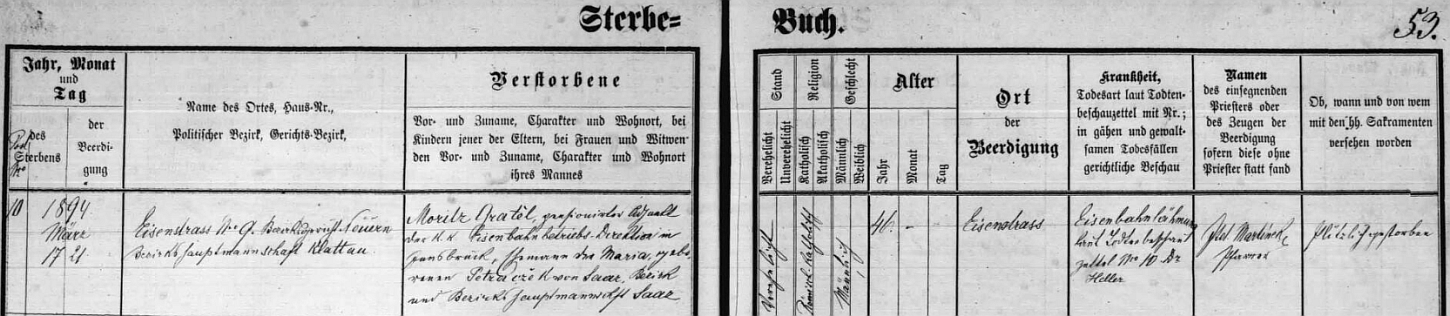 Sterbe=
Buch.
53.
Jahr, Monat
und
Tag
des
Sterbens
der
Beerdi-
gung
Name des Ortes, Haus-Nr.,
Politischer Bezirk, Gerichts-Bezirk,
Verstorbene
Vor- und Zuname, Charakter und Wohnort, bei
Kindern jener der Eltern, bei Frauen und Witwen
den Vor- und Zuname, Charakter und Wohnort
ihres Mannes
Stand
Verehelicht
Unverehelicht
Religion
Katholisch
Akatholisch
Geschlecht
Männlich
Weiblich
Alter
Jahr
Monat
Tag
Ort
der
Beerdigung
Krankheit,
Todesart laut Todten-
beschauzettel mit Nr.;
in gähen und gewalt-
samen Todesfällen
gerichtliche Beschau
Namen
des einsegnenden
Priesters oder
des Zeugen der
Beerdigung
sofern diese ohne
Priester statt fand
Ob, wann und von wem
mit den hh. Sakramenten
versehen worden
10
1894
März
17 21.
Eisenstrass No 9. Bezirksgericht Neuern
Bezirkshauptmannschaft Klattau
Moritz pensionirter
der k. k. Eisenbahnbetriebs-Direktion in
Ehemann der Maria, gebo-
renen von Saar, Bezirk
und Bezirkshauptmannschft Saar
Verehelicht
Römisch katholisch
Männlich
46. - -
Eisenstrass
laut Todtenbeschau
zettel No 10 Dr
Heller
Martinek,
Pfarrer
Plötzlich gestorben